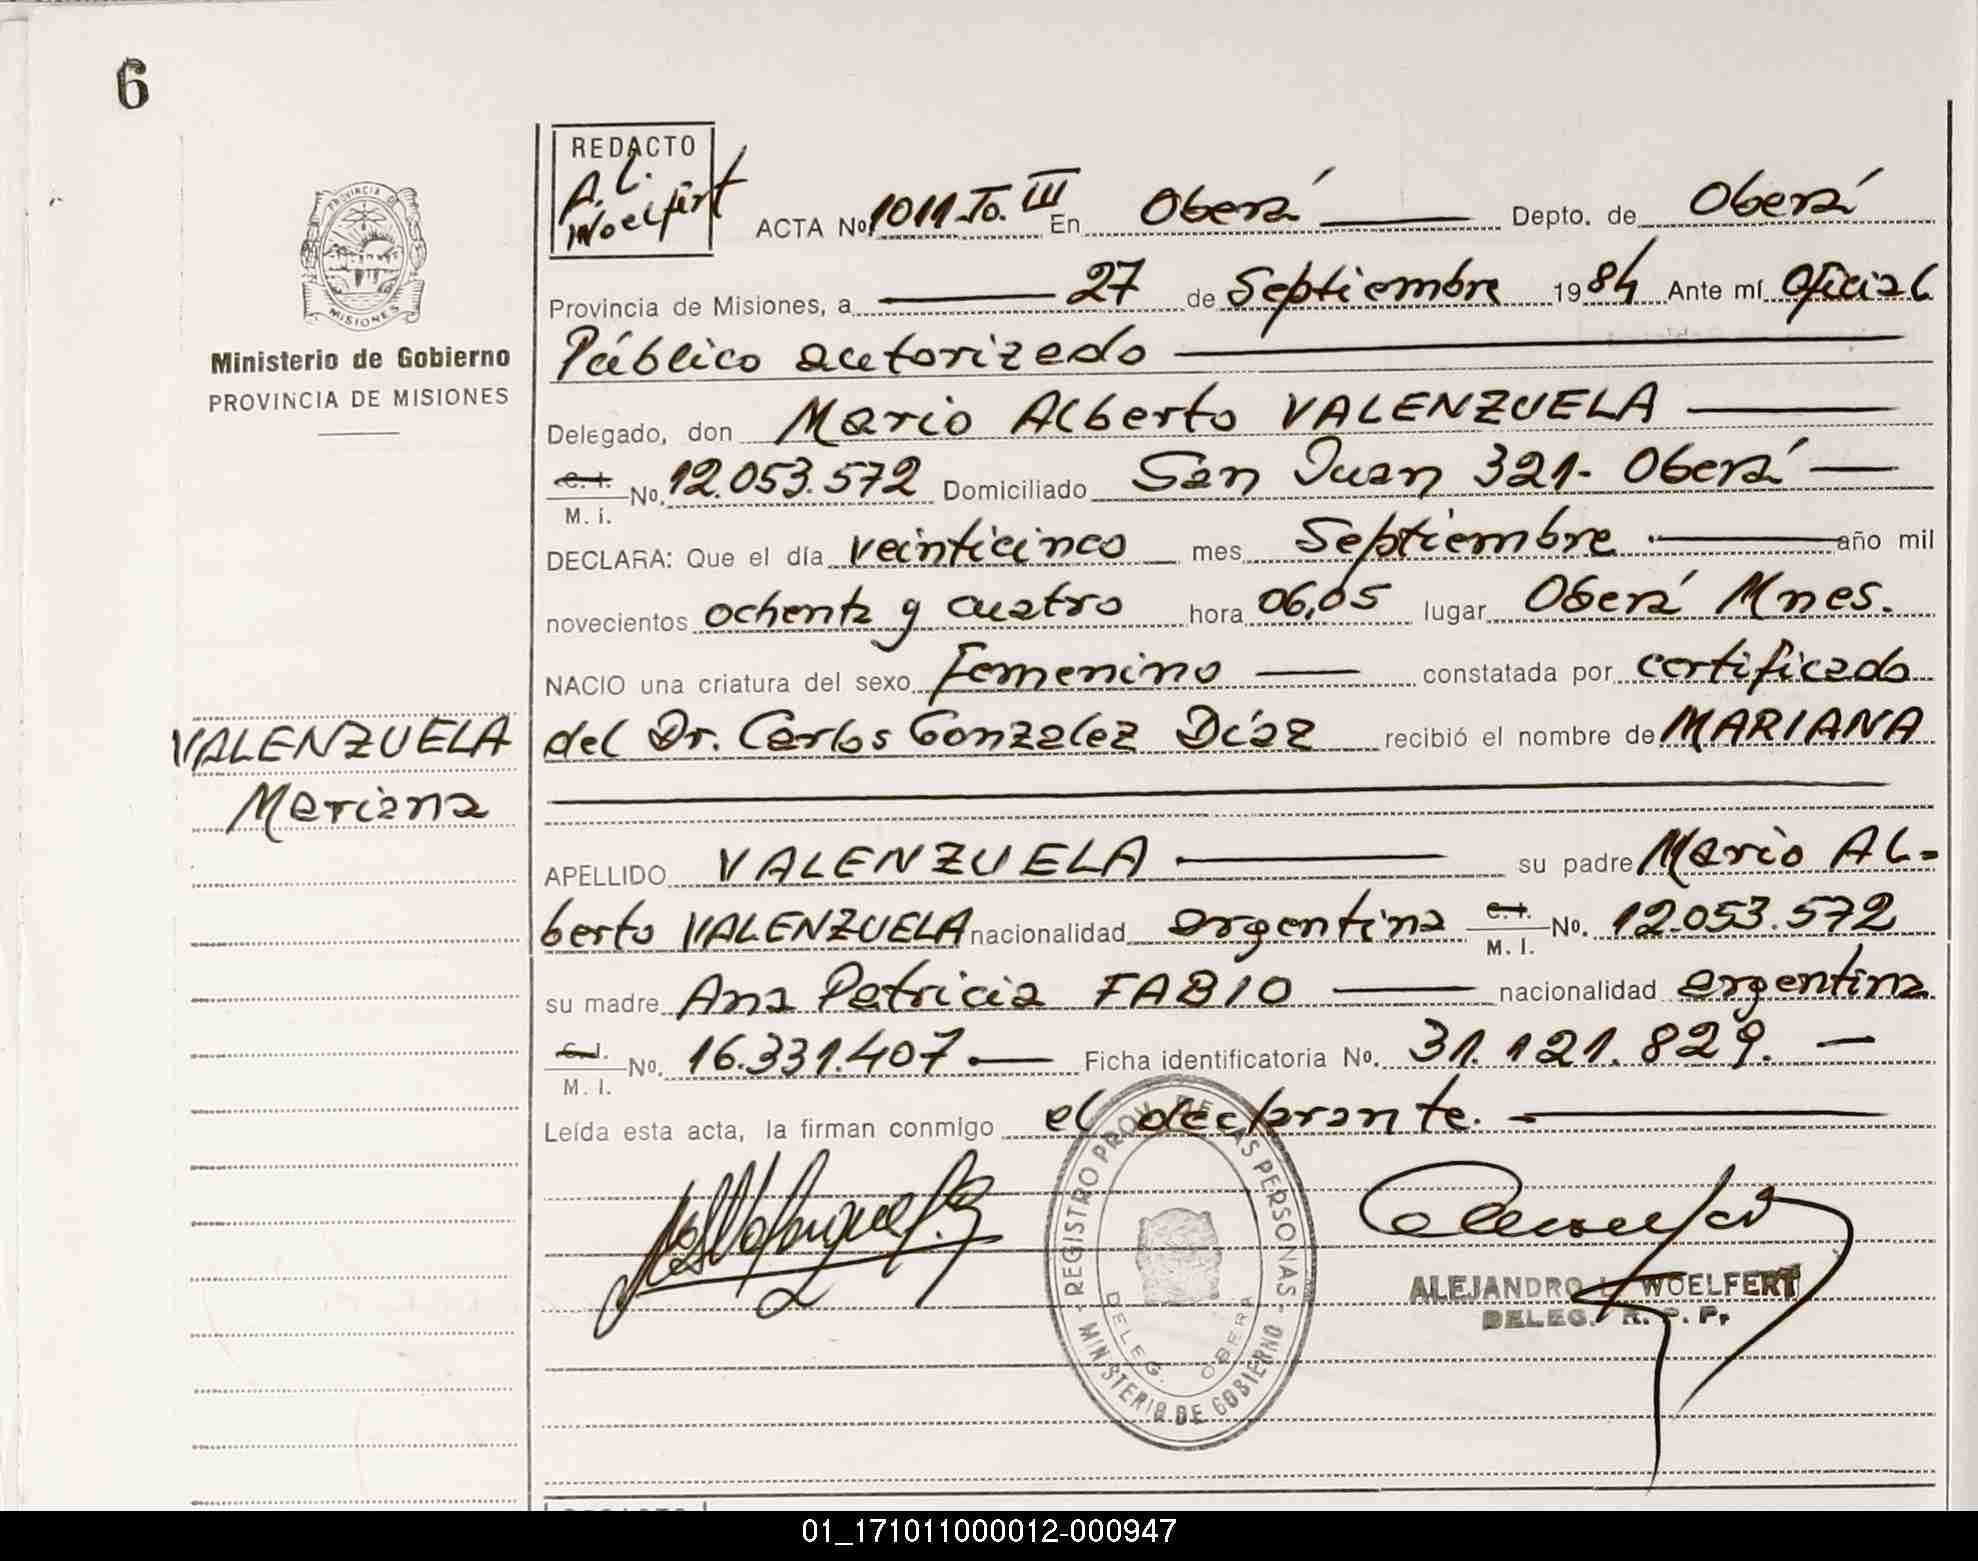 6
REDACTO
A. L.
Woelfert
ACTA No 1011-To. III En Oberá Depto. de Oberá
PROVINCIA DE
MISIONES
Provincia de Misiones, a 27 de Septiembre 1984 Ante mí Oficial
Ministerio de Gobierno
PROVINCIA DE MISIONES
Público autorizado
Delegado, don Mario Alberto VALENZUELA
C. I.
M. I. No. 12.053.572 Domiciliado San Juan 321- Oberá
DECLARA: Que el día veinticinco mes Septiembre año mil
novecientos ochenta y cuatro hora 06,05 lugar Oberá Mnes.
NACIO una criatura del sexo Femenino constatada por certificado
VALENZUELA
Mariana
del Dr. Carlos Gonzalez Díaz recibió el nombre de MARIANA
APELLIDO VALENZUELA su padre Mario Al-
berto VALENZUELA nacionalidad argentina C. I. M. I. No. 12.053.572
su madre Ana Patricia FABIO nacionalidad argentina
C. I.
M. I. No. 16.331.407. Ficha identificatoria No. 31.121.829.
Leída esta acta, la firman conmigo el declarante.
REGISTRO PROV. DE LAS PERSONAS
MINISTERIO DE GOBIERNO
DELEG. OBERA
ALEJANDRO L. WOELFERT
DELEG. R. P. P.
01_171011000012-000947